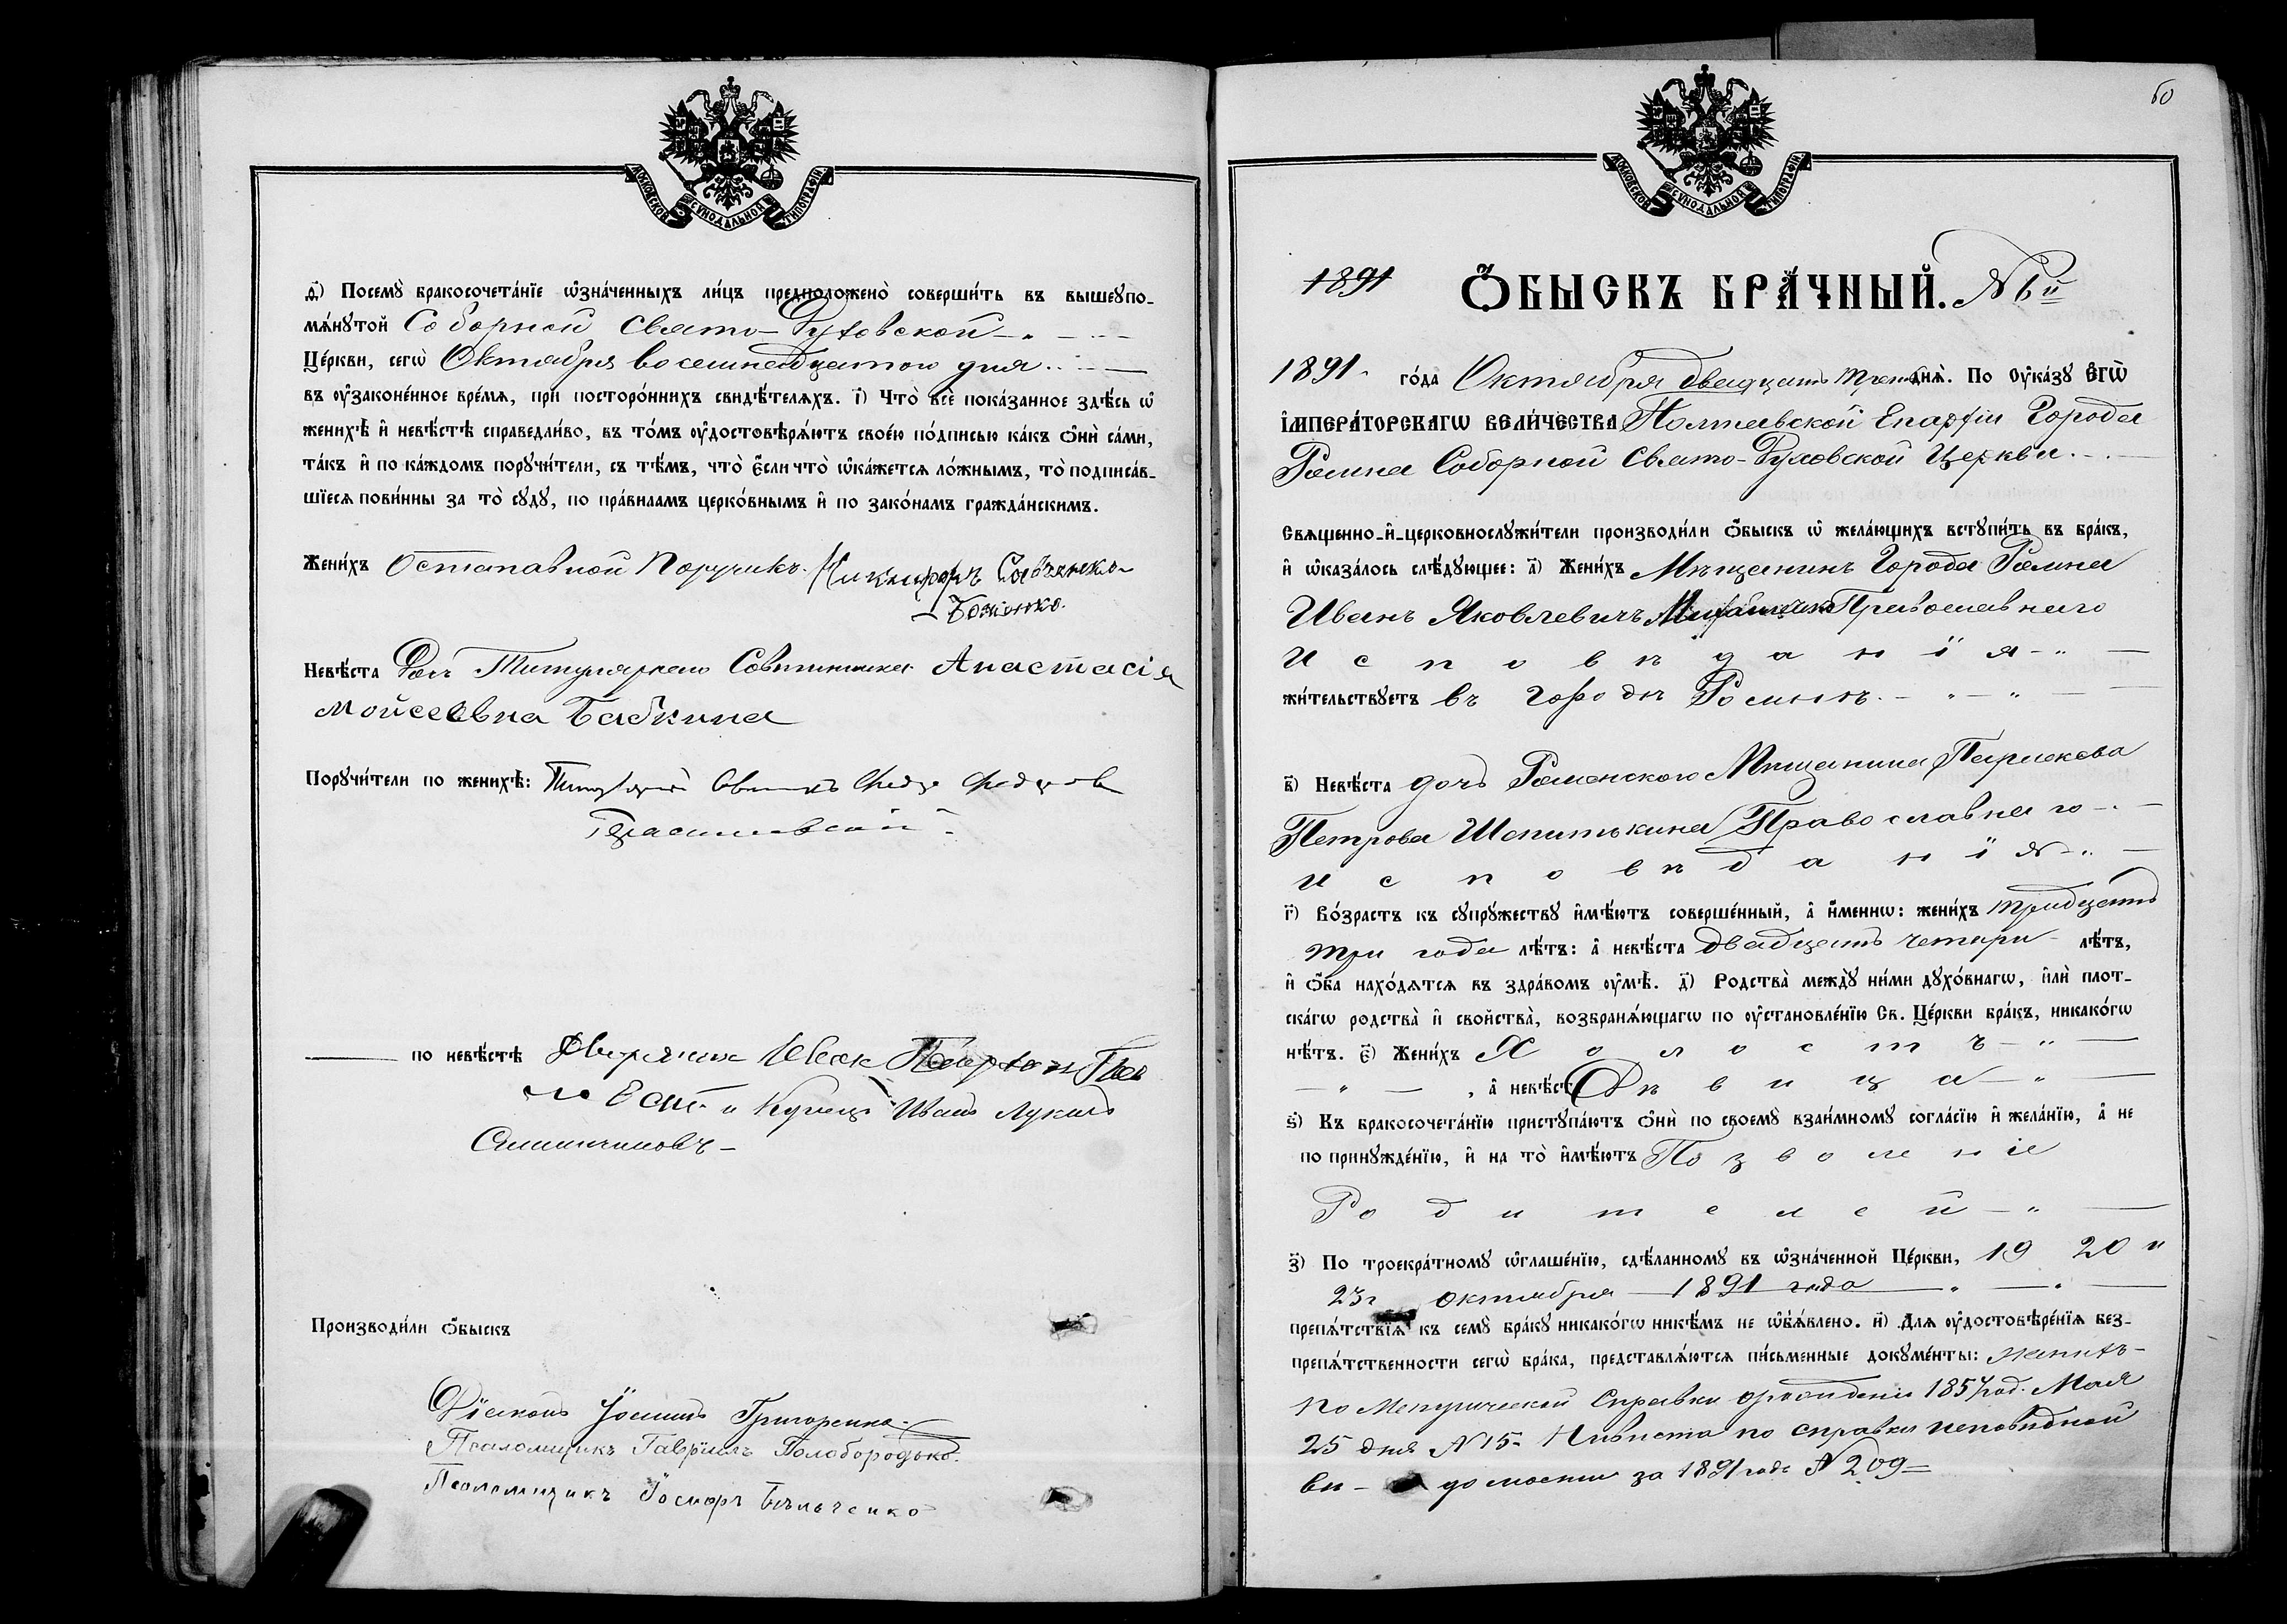 МОСКОВСКОЙ СѴНОДАЛЬНОЙ ТИПОГРАФІИ
ѳ҃) Посемꙋ̀ бракосочета́нїе ѡ҆зна́ченныхъ ли́цъ предположено̀ соверши́ть въ вышеꙋпо-
мѧ́нꙋтой Соборной Свято-Духовской
Це́ркви, сегѡ̀ Октября восемнадцатого дня
въ оу҆законе́нное вре́мѧ, при посторо́ннихъ свидѣ́телѧхъ. і҃) Что̀ всѐ пока́занное здѣ́сь ѡ҆
женихѣ̀ и҆ невѣ́стѣ справедли́во, въ то́мъ оу҆достовѣрѧ́ютъ свое́ю по́дписью ка́къ ѻ҆нѝ са́ми,
та́къ и҆ по ка́ждомъ порꙋчи́тели, съ тѣ́мъ, что̀ є҆́сли что̀ ѡ҆ка́жетсѧ ло́жнымъ, то̀ подписа́в-
шїесѧ пови́нны за то̀ сꙋдꙋ̀, по пра́виламъ церко́внымъ и҆ по зако́намъ гражда́нскимъ.
Жени́хъ Отставной Поручикъ Никифоръ Савченко-
- Боженко.
Невѣ́ста Доч Титулярнаго Совѣтника Анастасія
Мойсеевна Бабкина
Порꙋчи́тели по женихѣ̀:
по невѣ́стѣ Дворянин
и Купецъ Иванъ Лукичъ
Производи́ли ѻ҆́быскъ
Діаконъ Іоаннъ Григоренко
Псаломщикъ Гавріилъ Голобородько.
Псаломщикъ Іосифъ Бѣльченко
60
МОСКОВСКОЙ СѴНОДАЛЬНОЙ ТИПОГРАФІИ
1891 Ѻ҆́БЫСКЪ БРА́ЧНЫЙ. №
1891 го́да Октября двадцать третьяго днѧ̀. По Оу҆ка́зꙋ Є҆ГѠ̀
І҆МПЕРА́ТОРСКАГѠ ВЕЛИ́ЧЕСТВА Полтавской Епархіи Города
Ромна Соборной Свято-Духовской Церкви
Свѧщенно-и҆-церковнослꙋжи́тели производи́ли ѻ҆́быскъ ѡ҆ жела́ющихъ встꙋпи́ть въ бра́къ,
и҆ ѡ҆каза́лось слѣ́дꙋющее: а҃) Жени́хъ Мѣщанинъ Города Ромна
Иванъ Яковлевичъ Православнаго
Исповѣданія
жи́тельствꙋетъ въ Городѣ Ромнѣ
в҃) Невѣ́ста дочь Роменского Мѣщанина Параскева
Петрова Шепитькина Православнаго
Исповѣданія
г҃) Во́зрастъ къ сꙋпрꙋ́жествꙋ и҆мѣ́ютъ соверше́нный, а҆ и҆́меннѡ: жени́хъ тридцать
три года лѣ́тъ: а҆ невѣ́ста двадцать четыри лѣ́тъ,
и҆ ѻ҆́ба нахо́дѧтсѧ въ здра́вомъ оу҆мѣ̀. д҃) Родства̀ междꙋ̀ ни́ми дꙋхо́внагѡ, и҆лѝ плот-
ска́гѡ родства̀ и҆ свойства̀, возбранѧ́ющагѡ по оу҆становле́нїю Св. Це́ркви бра́къ, никако́гѡ
нѣ́тъ. є҃) Жени́хъ Холостъ
, а҆ невѣ́ста Дѣвица
ѕ҃) Къ бракосочета́нїю пристꙋпа́ютъ ѻ҆нѝ по своемꙋ̀ взаи́мномꙋ согла́сїю и҆ жела́нїю, а҆ не
по принꙋжде́нїю, и҆ на то̀ и҆мѣ́ютъ Позволеніе
Родителей
з҃) По троекра́тномꙋ ѡ҆глаше́нїю, сдѣ́ланномꙋ въ ѡ҆зна́ченной Це́ркви, 19 20 и
23го октября 1891 года
препѧ́тствїѧ къ семꙋ̀ бра́кꙋ никако́гѡ никѣ́мъ не ѡ҆б̾ѧ́влено. и҃) Для оу҆достовѣре́нїѧ без-
препѧ́тственности сегѡ̀ бра́ка, представлѧ́ютсѧ пи́сьменные докꙋме́нты: женихъ-
по Метрической Справки о рожденіи 1857 год. Мая
25 дня №15. Нивиста по справки исповидной
ви- домости за 1891 годъ № 209